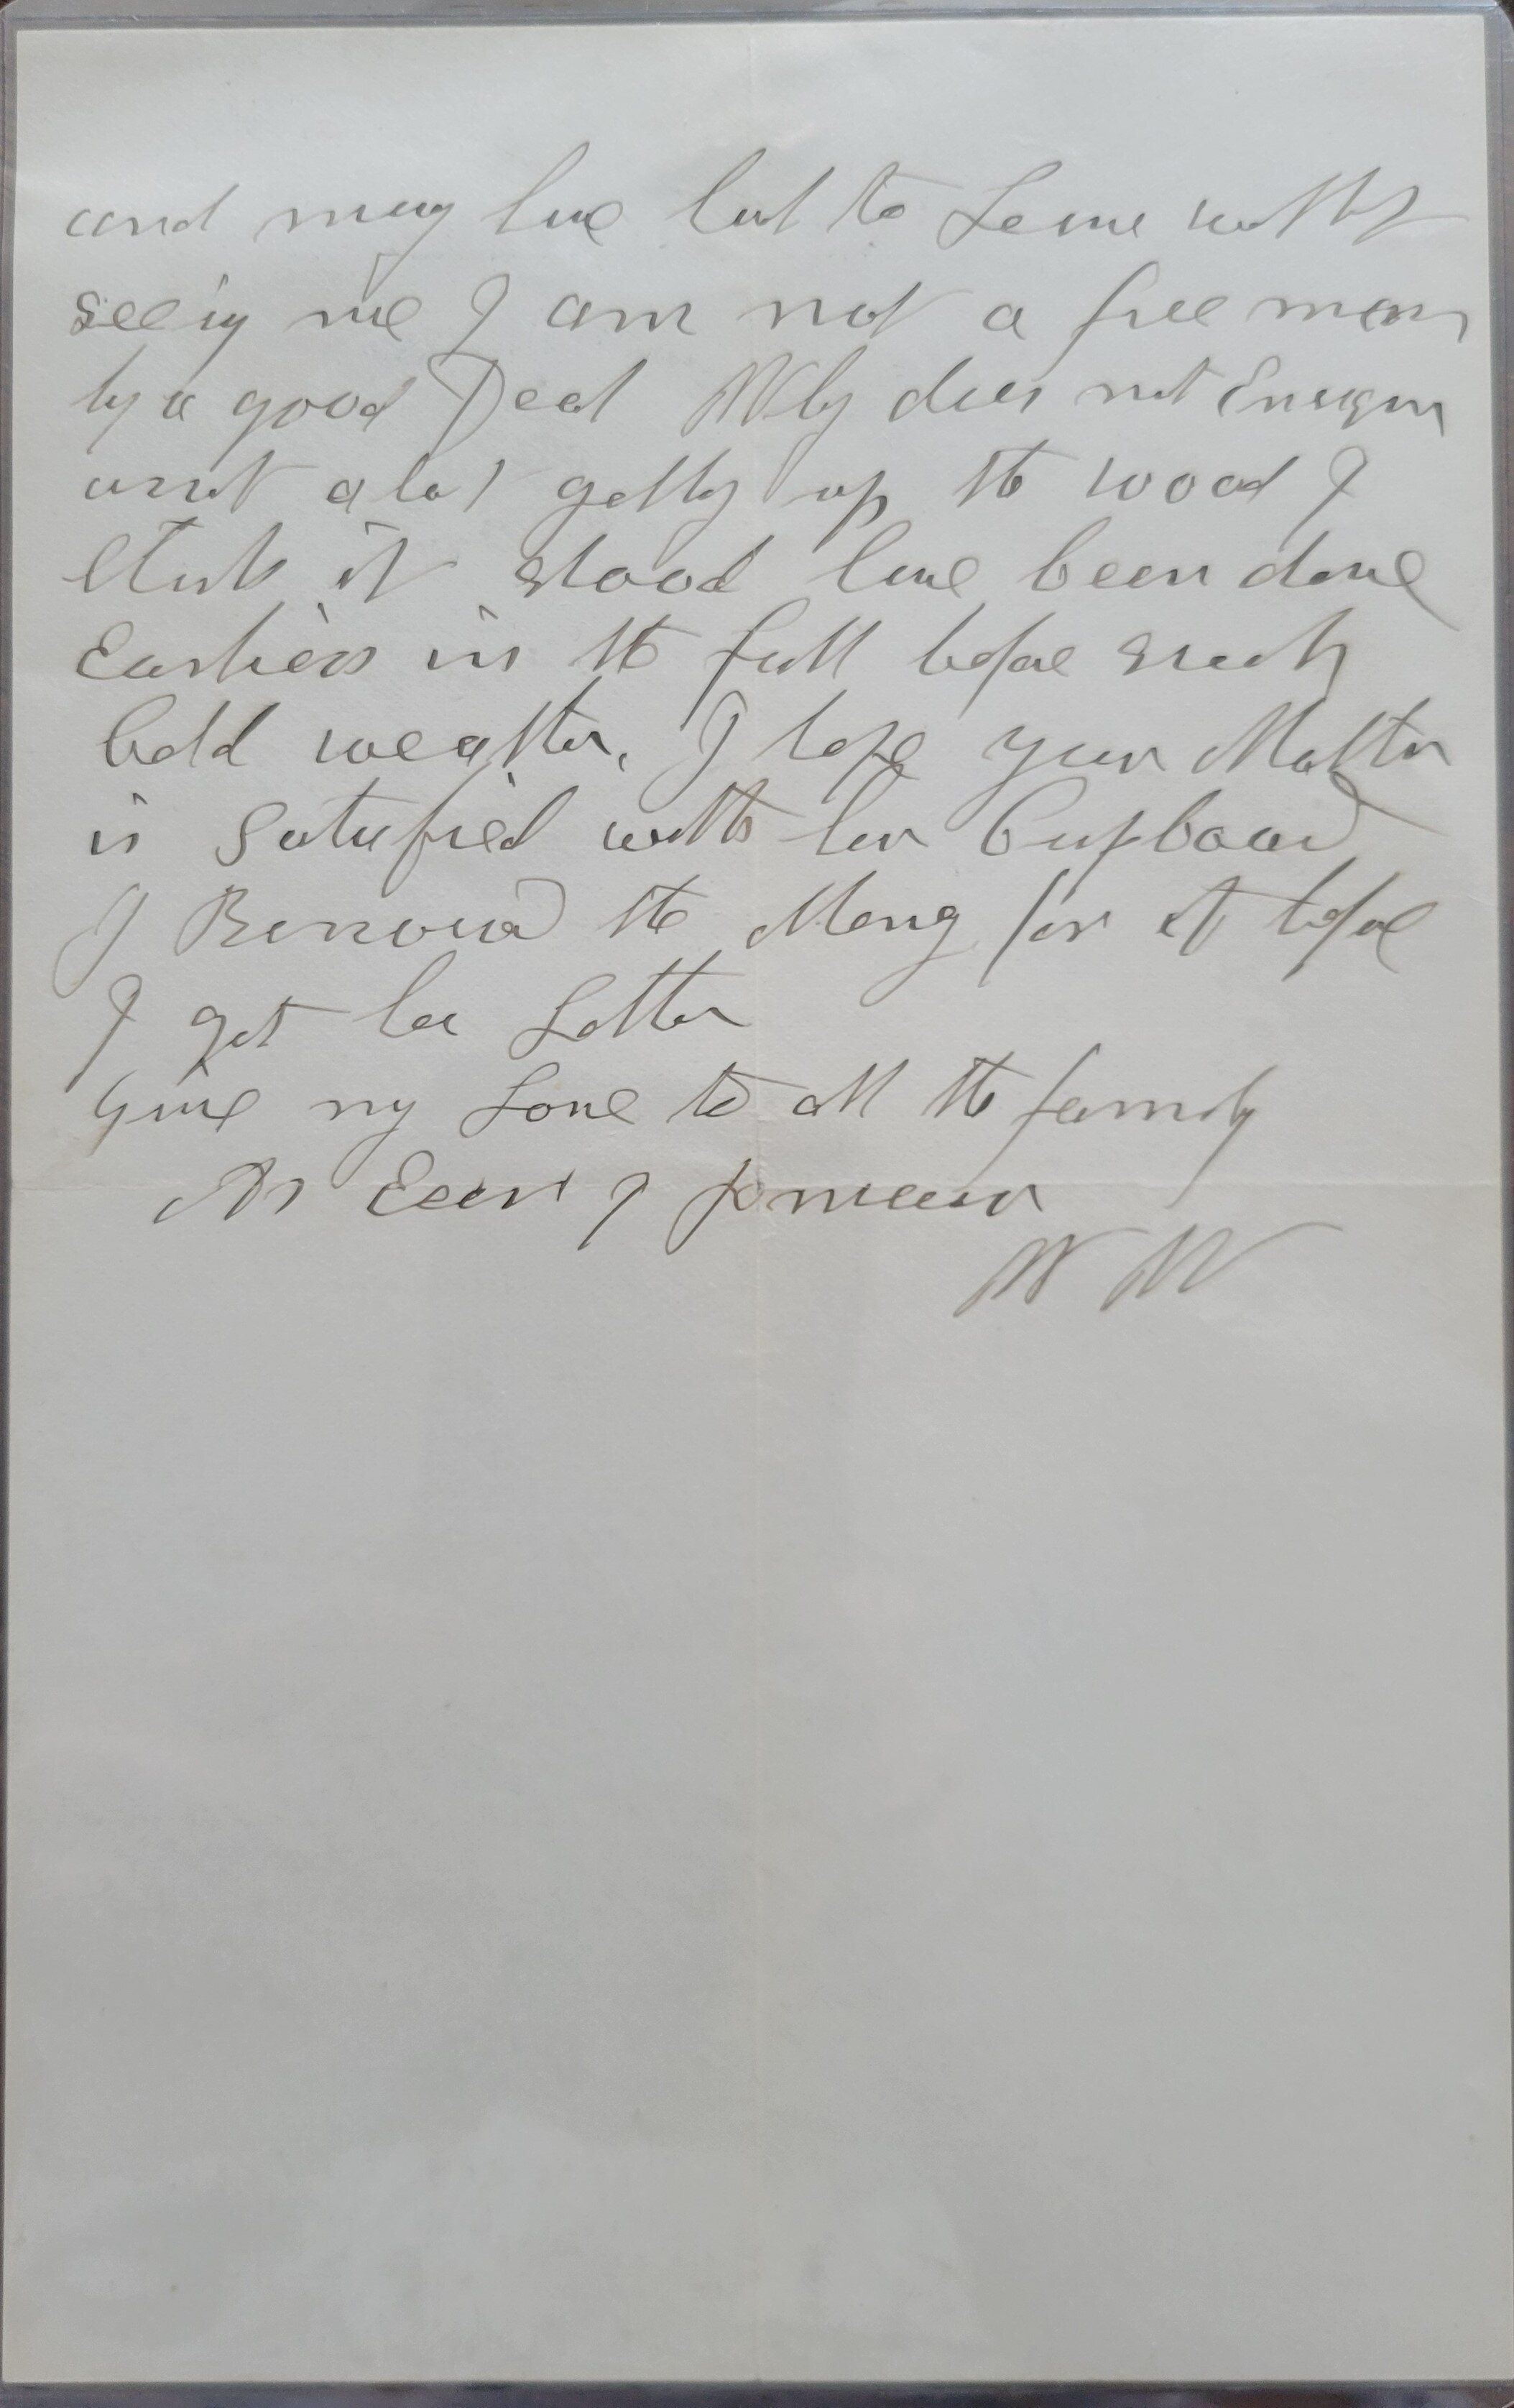 and may have but to Leave without
seeing me I am not a free man
by a good Deal Why does not
want a lot getting up the wood I
think it should have been done
Earlier in the fall before such
Cold weather. I hope your Mother
is Satisfied with her Cupboard
I Borrowed the Money for it before
I got her Letter
Give my Love to all the family
As Ever I remain
W W